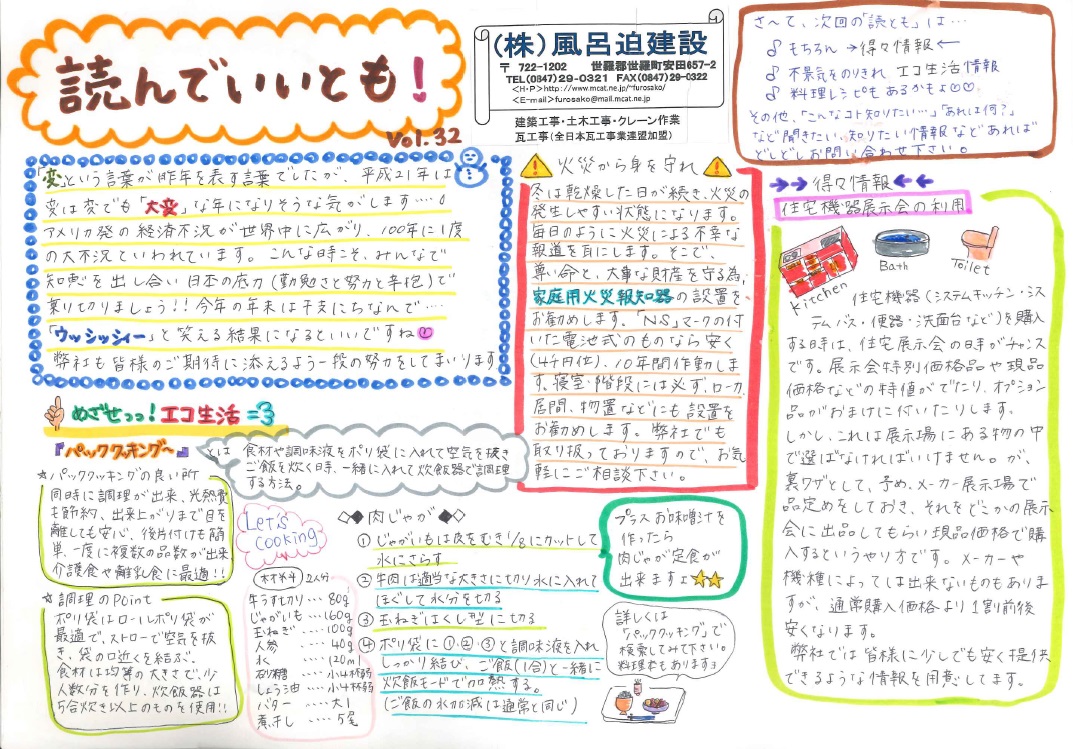 読んでいいとも!
Vol.32
(株)風呂迫建設
〒 722-1202 世羅郡世羅町安田657-2
TEL(0847)29-0321 FAX(0847)29-0322
<H・P>http://www.mcat.ne.jp/~furosako/
<E-mail>furosako@mail.mcat.ne.jp
建築工事・土木工事・クレーン作業
瓦工事(全日本瓦工事業連盟加盟)
さ〜て、次回の「読とも」は…
もちろん →得々情報←
不景気をのりきれ エコ生活情報
料理レシピもあるかもよ♡♡
その他、「こんなコト知りたい…」「あれは何?」
など聞きたい、知りたい情報などあれば
どしどしお問い合わせ下さい。
「変」という言葉が昨年を表す言葉でしたが、平成21年は
変は変でも「大変」な年になりそうな気がします….。
アメリカ発の経済不況が世界中に広がり、100年に1度
の大不況といわれています。こんな時こそ、みんなで
知恵を出し合い日本の底力(勤勉さと努力と辛抱)で
乗り切りましょう!!今年の年末は干支にちなんで….
「ウッシッシィー」と笑える結果になるといいですね♡
弊社も皆様のご期待に添えるよう一段の努力をしてまいります
火災から身を守れ
冬は乾燥した日が続き、火災の
発生しやすい状態になります。
毎日のように火災による不幸な
報道を耳にします。そこで、
尊い命と、大事な財産を守る為、
家庭用火災報知器の設置を
お勧めします。「NS」マークの付
いた電池式のものなら安く
(4千円位)、10年間作動しま
す。寝室・階段には必ず、ローカ、
居間、物置などにも設置を
お勧めします。弊社でも
取り扱っておりますので、お気
軽にご相談下さい。
→→ 得々情報 ←←
住宅機器展示会の利用
Kitchen
Bath
Toilet
住宅機器(システムキッチン・シス
テムバス・便器・洗面台など)を購入
する時は、住宅展示会の日時がチャンス
です。展示会特別価格品や現品
価格などの特値がでたり、オプション
品がおまけに付いたりします。
しかし、これは展示場にある物の中
で選ばなければいけません。が、
裏ワザとして、予め、メーカー展示場で
品定めをしておき、それをどこかの展示
会に出品してもらい現品価格で購
入するというやり方です。メーカーや
機種によっては出来ないものもありま
すが、通常購入価格より1割前後
安くなります。
弊社では皆様に少しでも安く提供
できるような情報を用意してます。
めざせっっ!エコ生活=3
『パッククッキング〜』
とは 食材や調味液をポリ袋に入れて空気を抜き
ご飯を炊く日時、一緒に入れて炊飯器で調理
する方法。
☆パッククッキングの良い所
同時に調理が出来、光熱費
も節約、出来上がりまで目を
離しても安心、後片付けも簡
単、一度に複数の品数が出来
介護食や離乳食に最適!!
☆調理のPoint
ポリ袋はロールポリ袋が
最適で、ストローで空気を抜
き、袋の口近くを結ぶ。
食材は均等の大きさで、少
人数分を作り、炊飯器は
5合炊き以上のものを使用!!
Let's
cooking
材料 2人分
牛うす切り…80g
じゃがいも…160g
玉ねぎ…100g
人参…40g
水…120ml
砂糖…小4杯弱
しょう油…小4杯弱
バター…大1
煮干し…5尾
◇◆肉じゃが◆◇
① じゃがいもは皮をむき1/8にカットして
水にさらす
② 牛肉は適当な大きさに切り水に入れて
ほぐして水分を切る
③ 玉ねぎはくし型に切る
④ ポリ袋に①・②・③と調味液を入れ
しっかり結び、ご飯(1合)と一緒に
炊飯モードで加熱する。
(ご飯の水加減は通常と同じ)
プラスお味噌汁を
作ったら
肉じゃが定食が
出来ますよ☆☆
詳しくは
「パッククッキング」で
検索してみて下さい。
料理本もありますョ